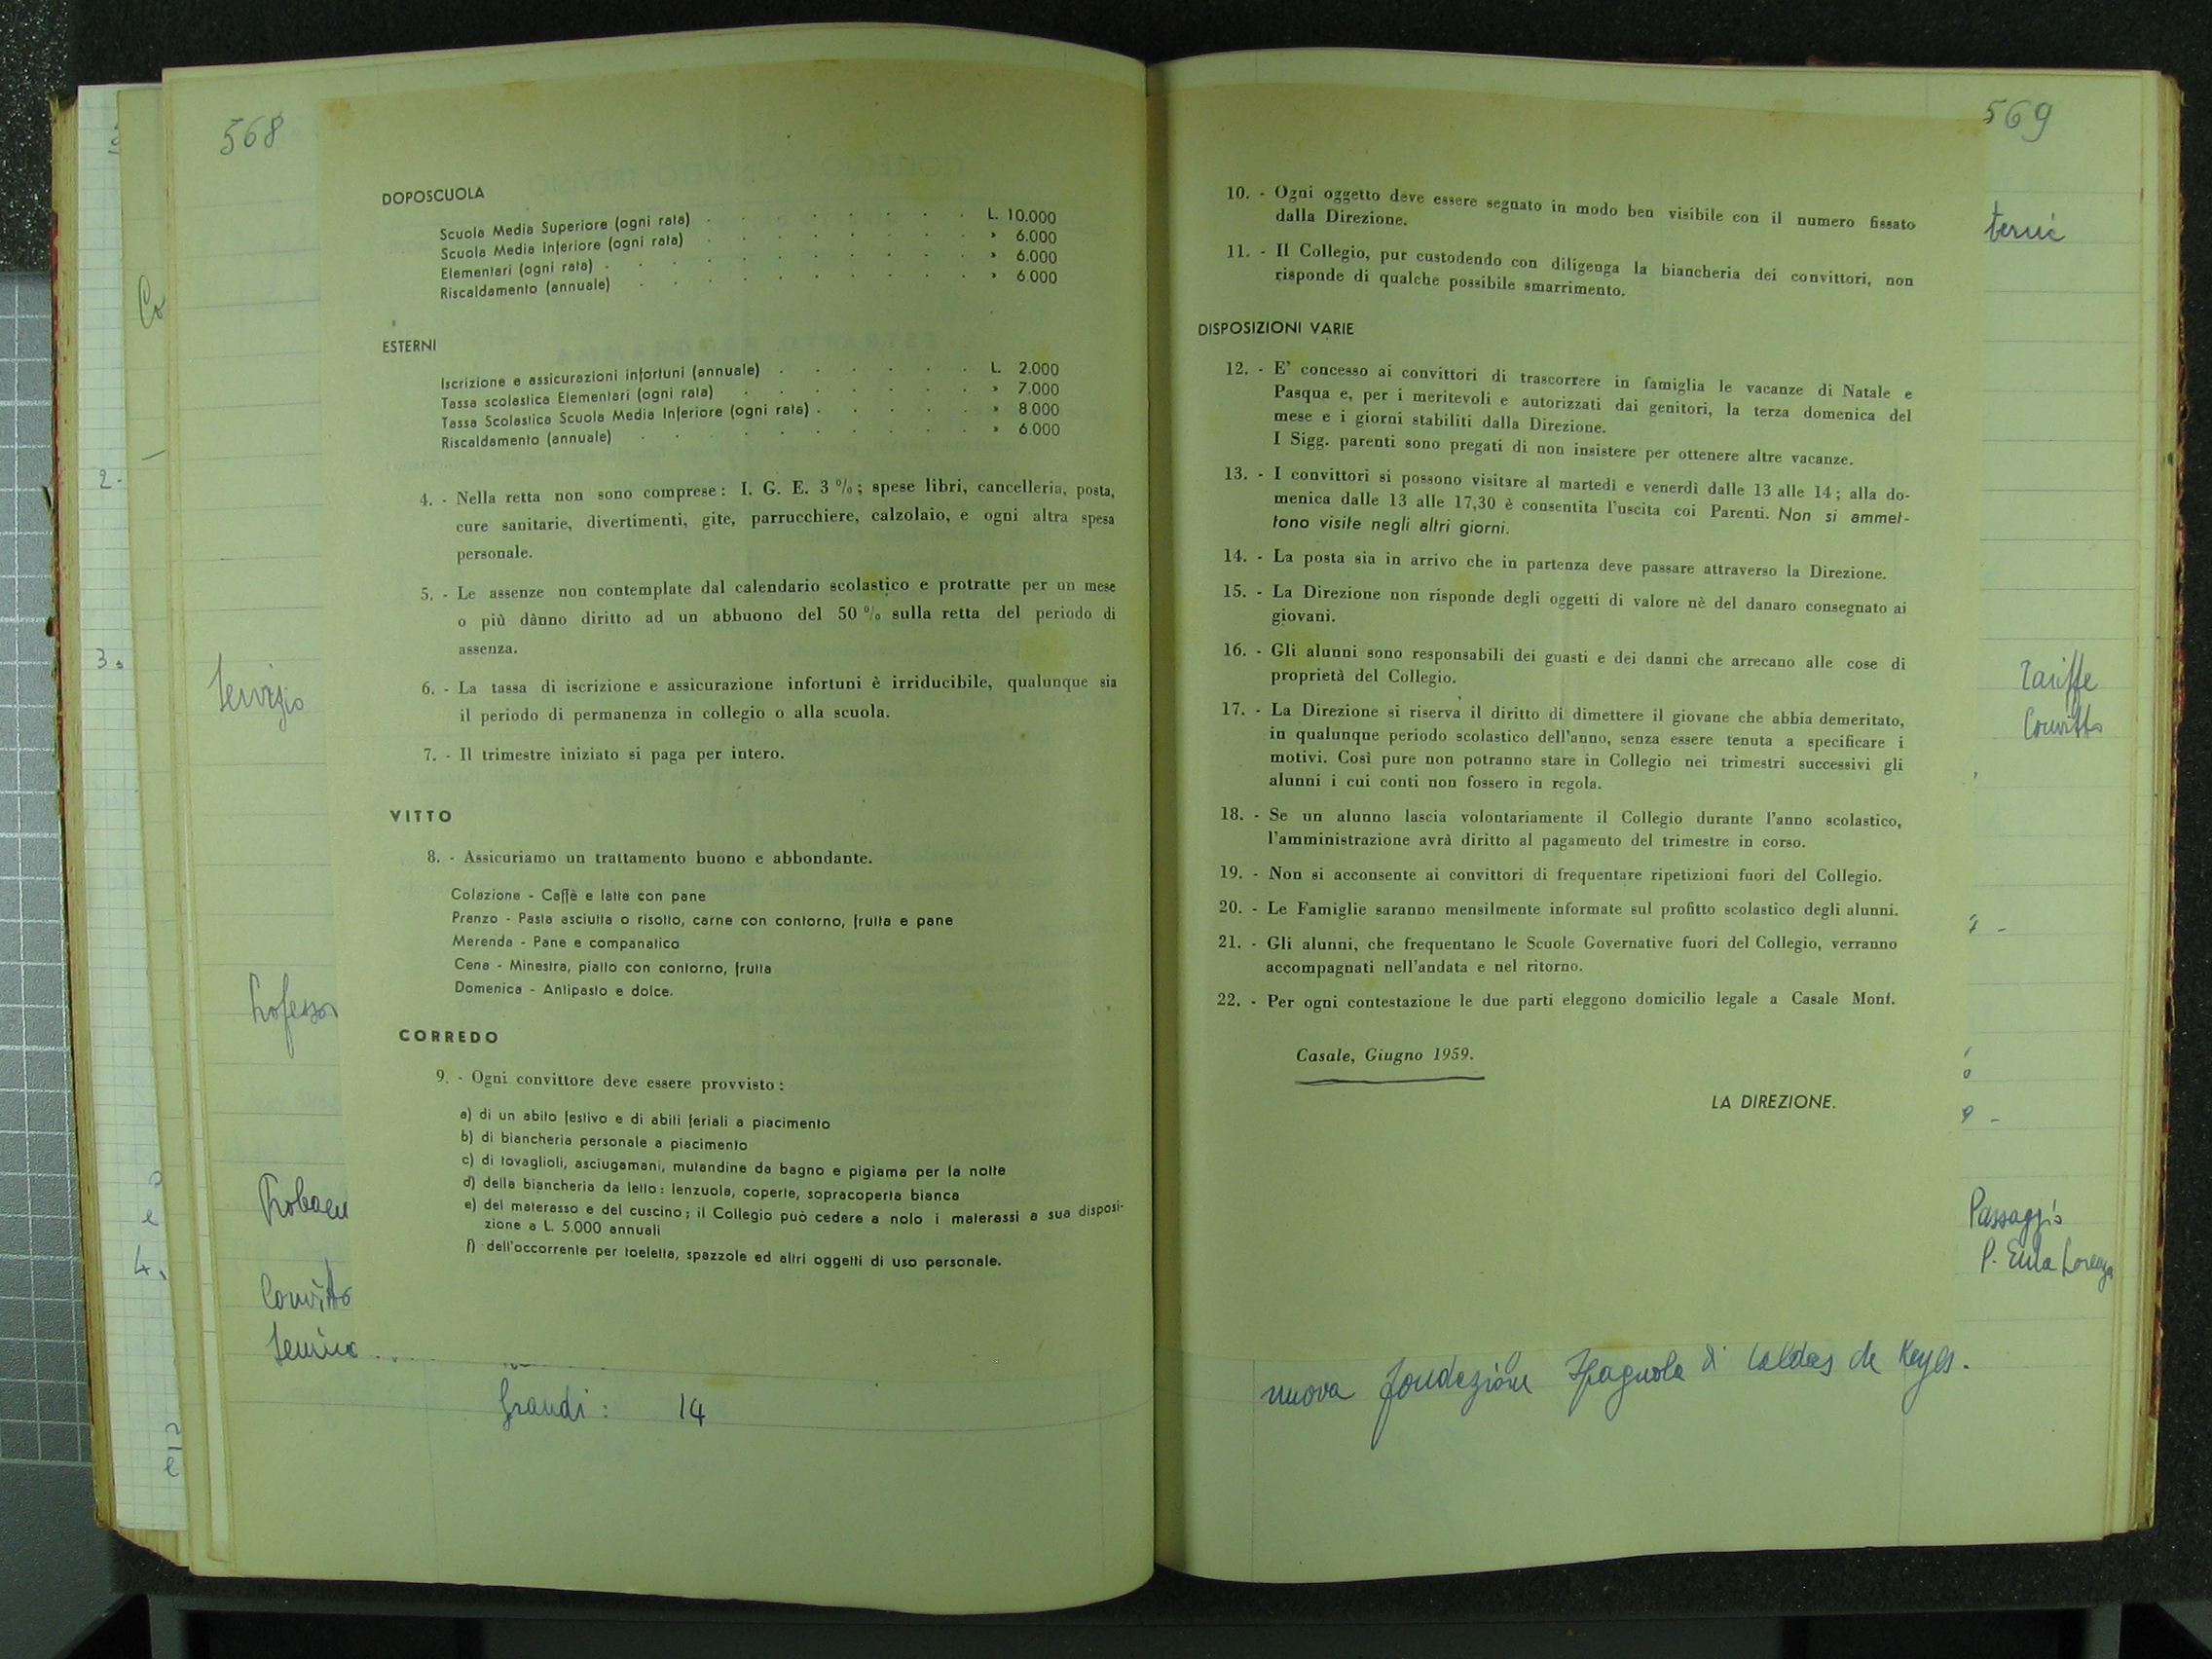 568
DOPOSCUOLA
Scuola Media Superiore (ogni rata) . . . . . . L. 10.000
Scuola Media inferiore (ogni rata) . . . . . . » 6.000
Elementari (ogni rata) . . . . . . . . » 6.000
Riscaldamento (annuale) . . . . . . . » 6.000
ESTERNI
Iscrizione e assicurazioni infortuni (annuale) . . . . . L. 2.000
Tassa scolastica Elementari (ogni rata) . . . . . . » 7.000
Tassa Scolastica Scuola Media Inferiore (ogni rata) . . . . » 8 000
Riscaldamento (annuale) . . . . . . . » 6.000
4. - Nella retta non sono comprese: I. G. E. 3 %; spese libri, cancelleria, posta,
cure sanitarie, divertimenti, gite, parrucchiere, calzolaio, e ogni altra spesa
personale.
5. - Le assenze non contemplate dal calendario scolastico e protratte per un mese
o più dànno diritto ad un abbuono del 50 % sulla retta del periodo di
assenza.
Servizio
6. - La tassa di iscrizione e assicurazione infortuni è irriducibile, qualunque sia
il periodo di permanenza in collegio o alla scuola.
7. - Il trimestre iniziato si paga per intero.
VITTO
8. - Assicuriamo un trattamento buono e abbondante.
Colazione - Caffè e latte con pane
Pranzo - Pasta asciutta o risotto, carne con contorno, frutta e pane
Merenda - Pane e companatico
Cena - Minestra, piatto con contorno, frutta
Domenica - Antipasto e dolce.
Professor
CORREDO
9. - Ogni convittore deve essere provvisto:
a) di un abito festivo e di abiti feriali a piacimento
b) di biancheria personale a piacimento
c) di tovaglioli, asciugamani, mutandine da bagno e pigiama per la notte
d) della biancheria da letto: lenzuola, coperte, sopracoperta bianca
e) del materasso e del cuscino; il Collegio può cedere a nolo i materassi a sua disposi-
zione a L. 5.000 annuali
f) dell'occorrente per toeletta, spazzole ed altri oggetti di uso personale.
Convitto
Grandi: 14
569
10. - Ogni oggetto deve essere segnato in modo ben visibile con il numero fissato
dalla Direzione.
11. - Il Collegio, pur custodendo con diligenga la biancheria dei convittori, non
risponde di qualche possibile smarrimento.
DISPOSIZIONI VARIE
12. - E' concesso ai convittori di trascorrere in famiglia le vacanze di Natale e
Pasqua e, per i meritevoli e autorizzati dai genitori, la terza domenica del
mese e i giorni stabiliti dalla Direzione.
I Sigg. parenti sono pregati di non insistere per ottenere altre vacanze.
13. - I convittori si possono visitare al martedì e venerdì dalle 13 alle 14; alla do-
menica dalle 13 alle 17,30 è consentita l'uscita coi Parenti. Non si ammet-
tono visite negli altri giorni.
14. - La posta sia in arrivo che in partenza deve passare attraverso la Direzione.
15. - La Direzione non risponde degli oggetti di valore nè del danaro consegnato ai
giovani.
16. - Gli alunni sono responsabili dei guasti e dei danni che arrecano alle cose di
proprietà del Collegio.
Tariffe
Convitto
17. - La Direzione si riserva il diritto di dimettere il giovane che abbia demeritato,
in qualunque periodo scolastico dell'anno, senza essere tenuta a specificare i
motivi. Così pure non potranno stare in Collegio nei trimestri successivi gli
alunni i cui conti non fossero in regola.
18. - Se un alunno lascia volontariamente il Collegio durante l'anno scolastico,
l'amministrazione avrà diritto al pagamento del trimestre in corso.
19. - Non si acconsente ai convittori di frequentare ripetizioni fuori del Collegio.
20. - Le Famiglie saranno mensilmente informate sul profitto scolastico degli alunni.
21. - Gli alunni, che frequentano le Scuole Governative fuori del Collegio, verranno
accompagnati nell'andata e nel ritorno.
22. - Per ogni contestazione le due parti eleggono domicilio legale a Casale Monf.
Casale, Giugno 1959.
LA DIREZIONE.
Passaggio
nuova fondazione Spagnola di Caldas de Reyes.